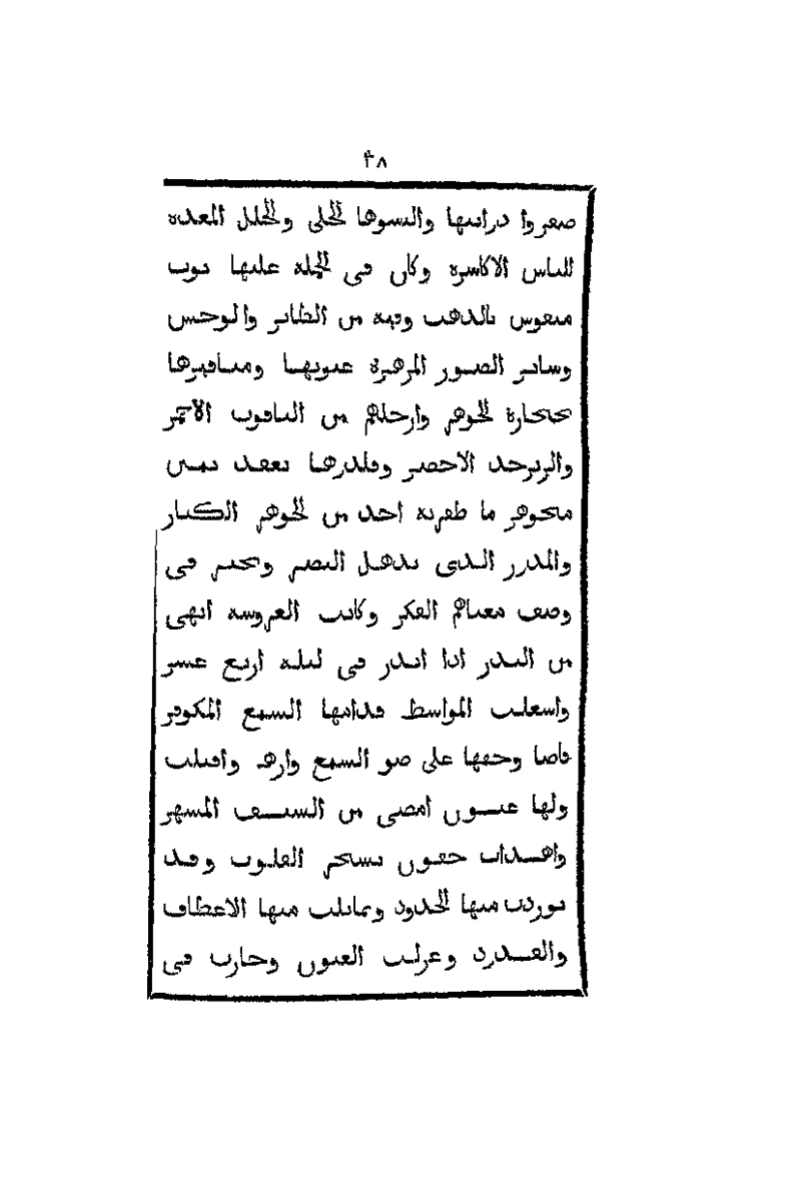 ٣٨
ضفروا ذرائبها والبسوها الحلى والحلل المعده
للباس الاكاسرة وكان فى الجملة عليها ثوب
منقوش بالذهب وفيه من الطائر والوحش
وسائر الصور المزهرة عيونها ومناقيرها
بحجارة الجوهر وارجلهم من الياقوت الاحمر
والزبرجد الاخضر وقلدوها بعقد ثمين
مجوهر ما ظفر به احد من الجوهر الكبار
والمدرر الذى يذهل البصر ويحير فى
وصف الفكر وكانت العروسة ابهى
من البدر اذا ابدر فى ليلة اربع عشر
واشعلت المواسط قدامها الشمع المكوفر
فاضا وجهها على ضو الشمع وازهر واقبلت
ولها عيون امضى من السيف المشهر
واهداب جفون تسحر القلوب وقد
توردت منها الخدود وتمايلت منها الاعطاف
والقدود وغزلت العيون وحارت فى